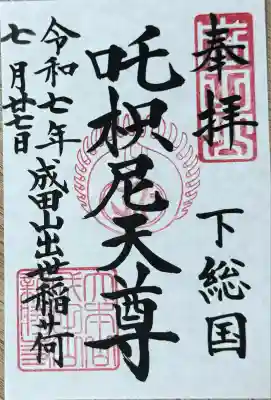 奉拝
下総国
吒枳尼天尊
成田山出世稲荷
令和七年
七月廿七日